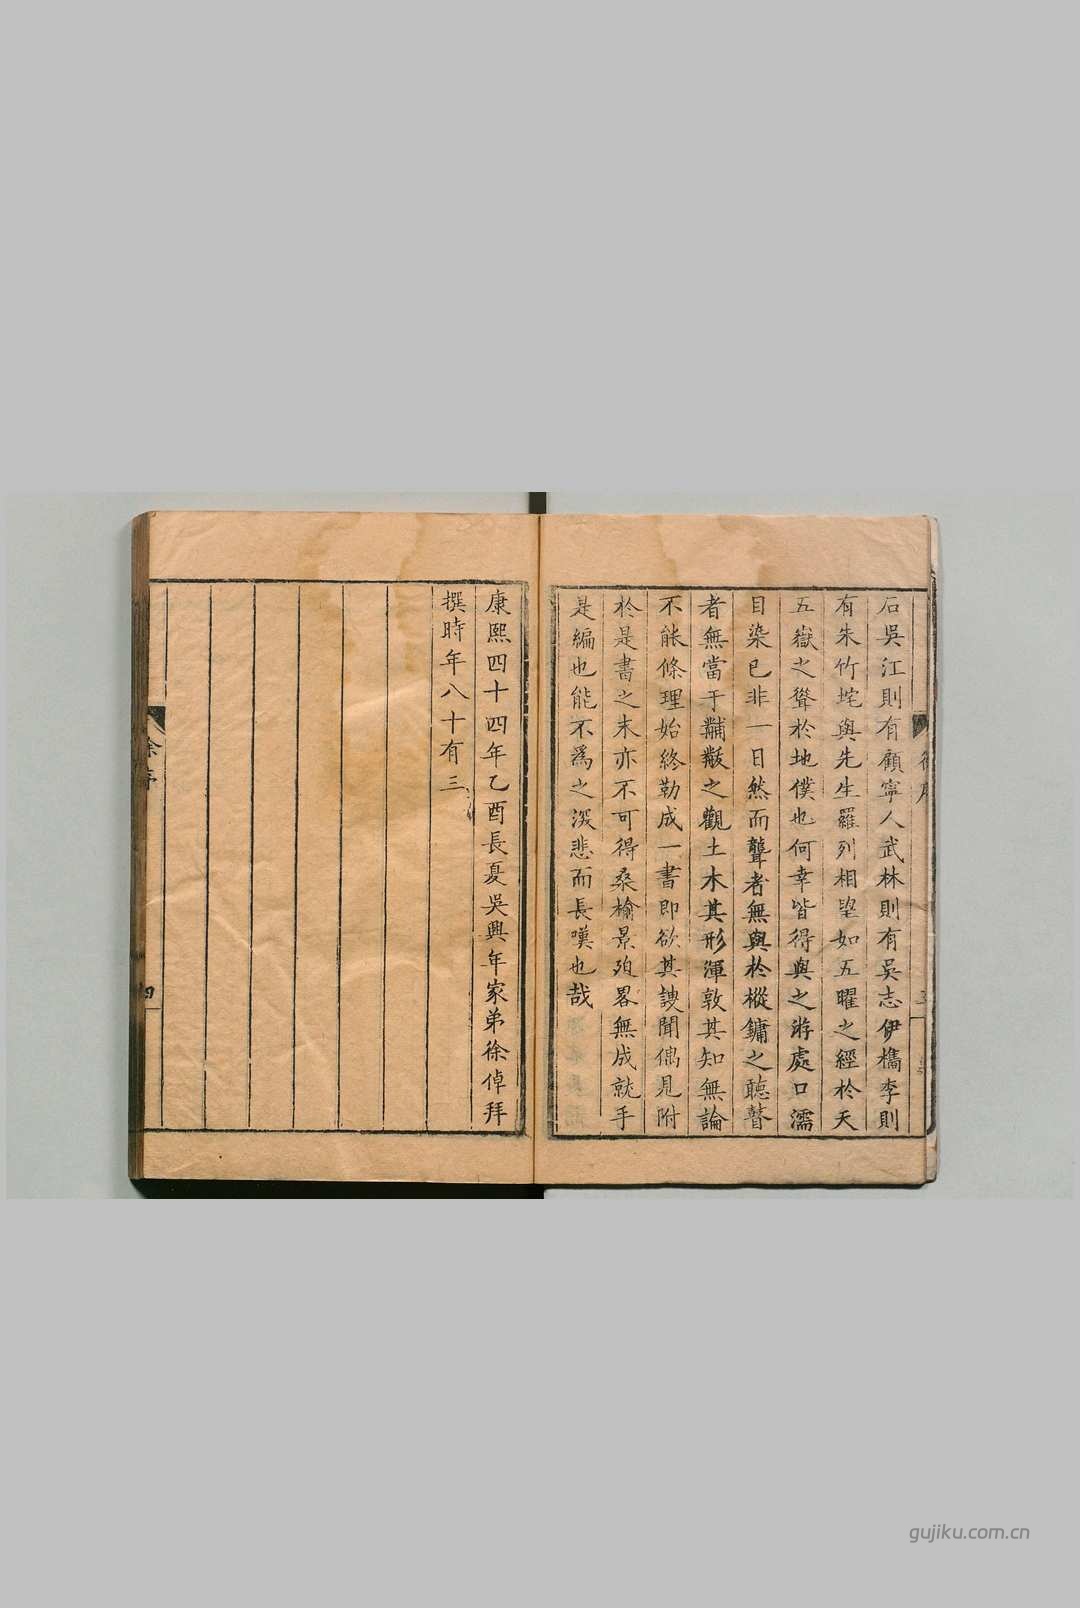 石吳江則有顧寧人武林則有吳志伊檇李則
有朱竹垞與先生羅列相望如五曜之經於天
五嶽之聳於地僕也何幸皆得與之游處口濡
目染已非一日然而聾者無與於樅鏞之聽瞽
者無當于黼黻之觀土木其形渾敦其知無論
不能條理始終勒成一書即欲其謏聞偶見附
於是書之末亦不可得桑榆景殆畧無成就手
是編也能不爲之深悲而長嘆也哉
康熙四十四年乙酉長夏吳興年家弟徐倬拜
撰時年八十有三
徐序
四
gujiku.com.cn